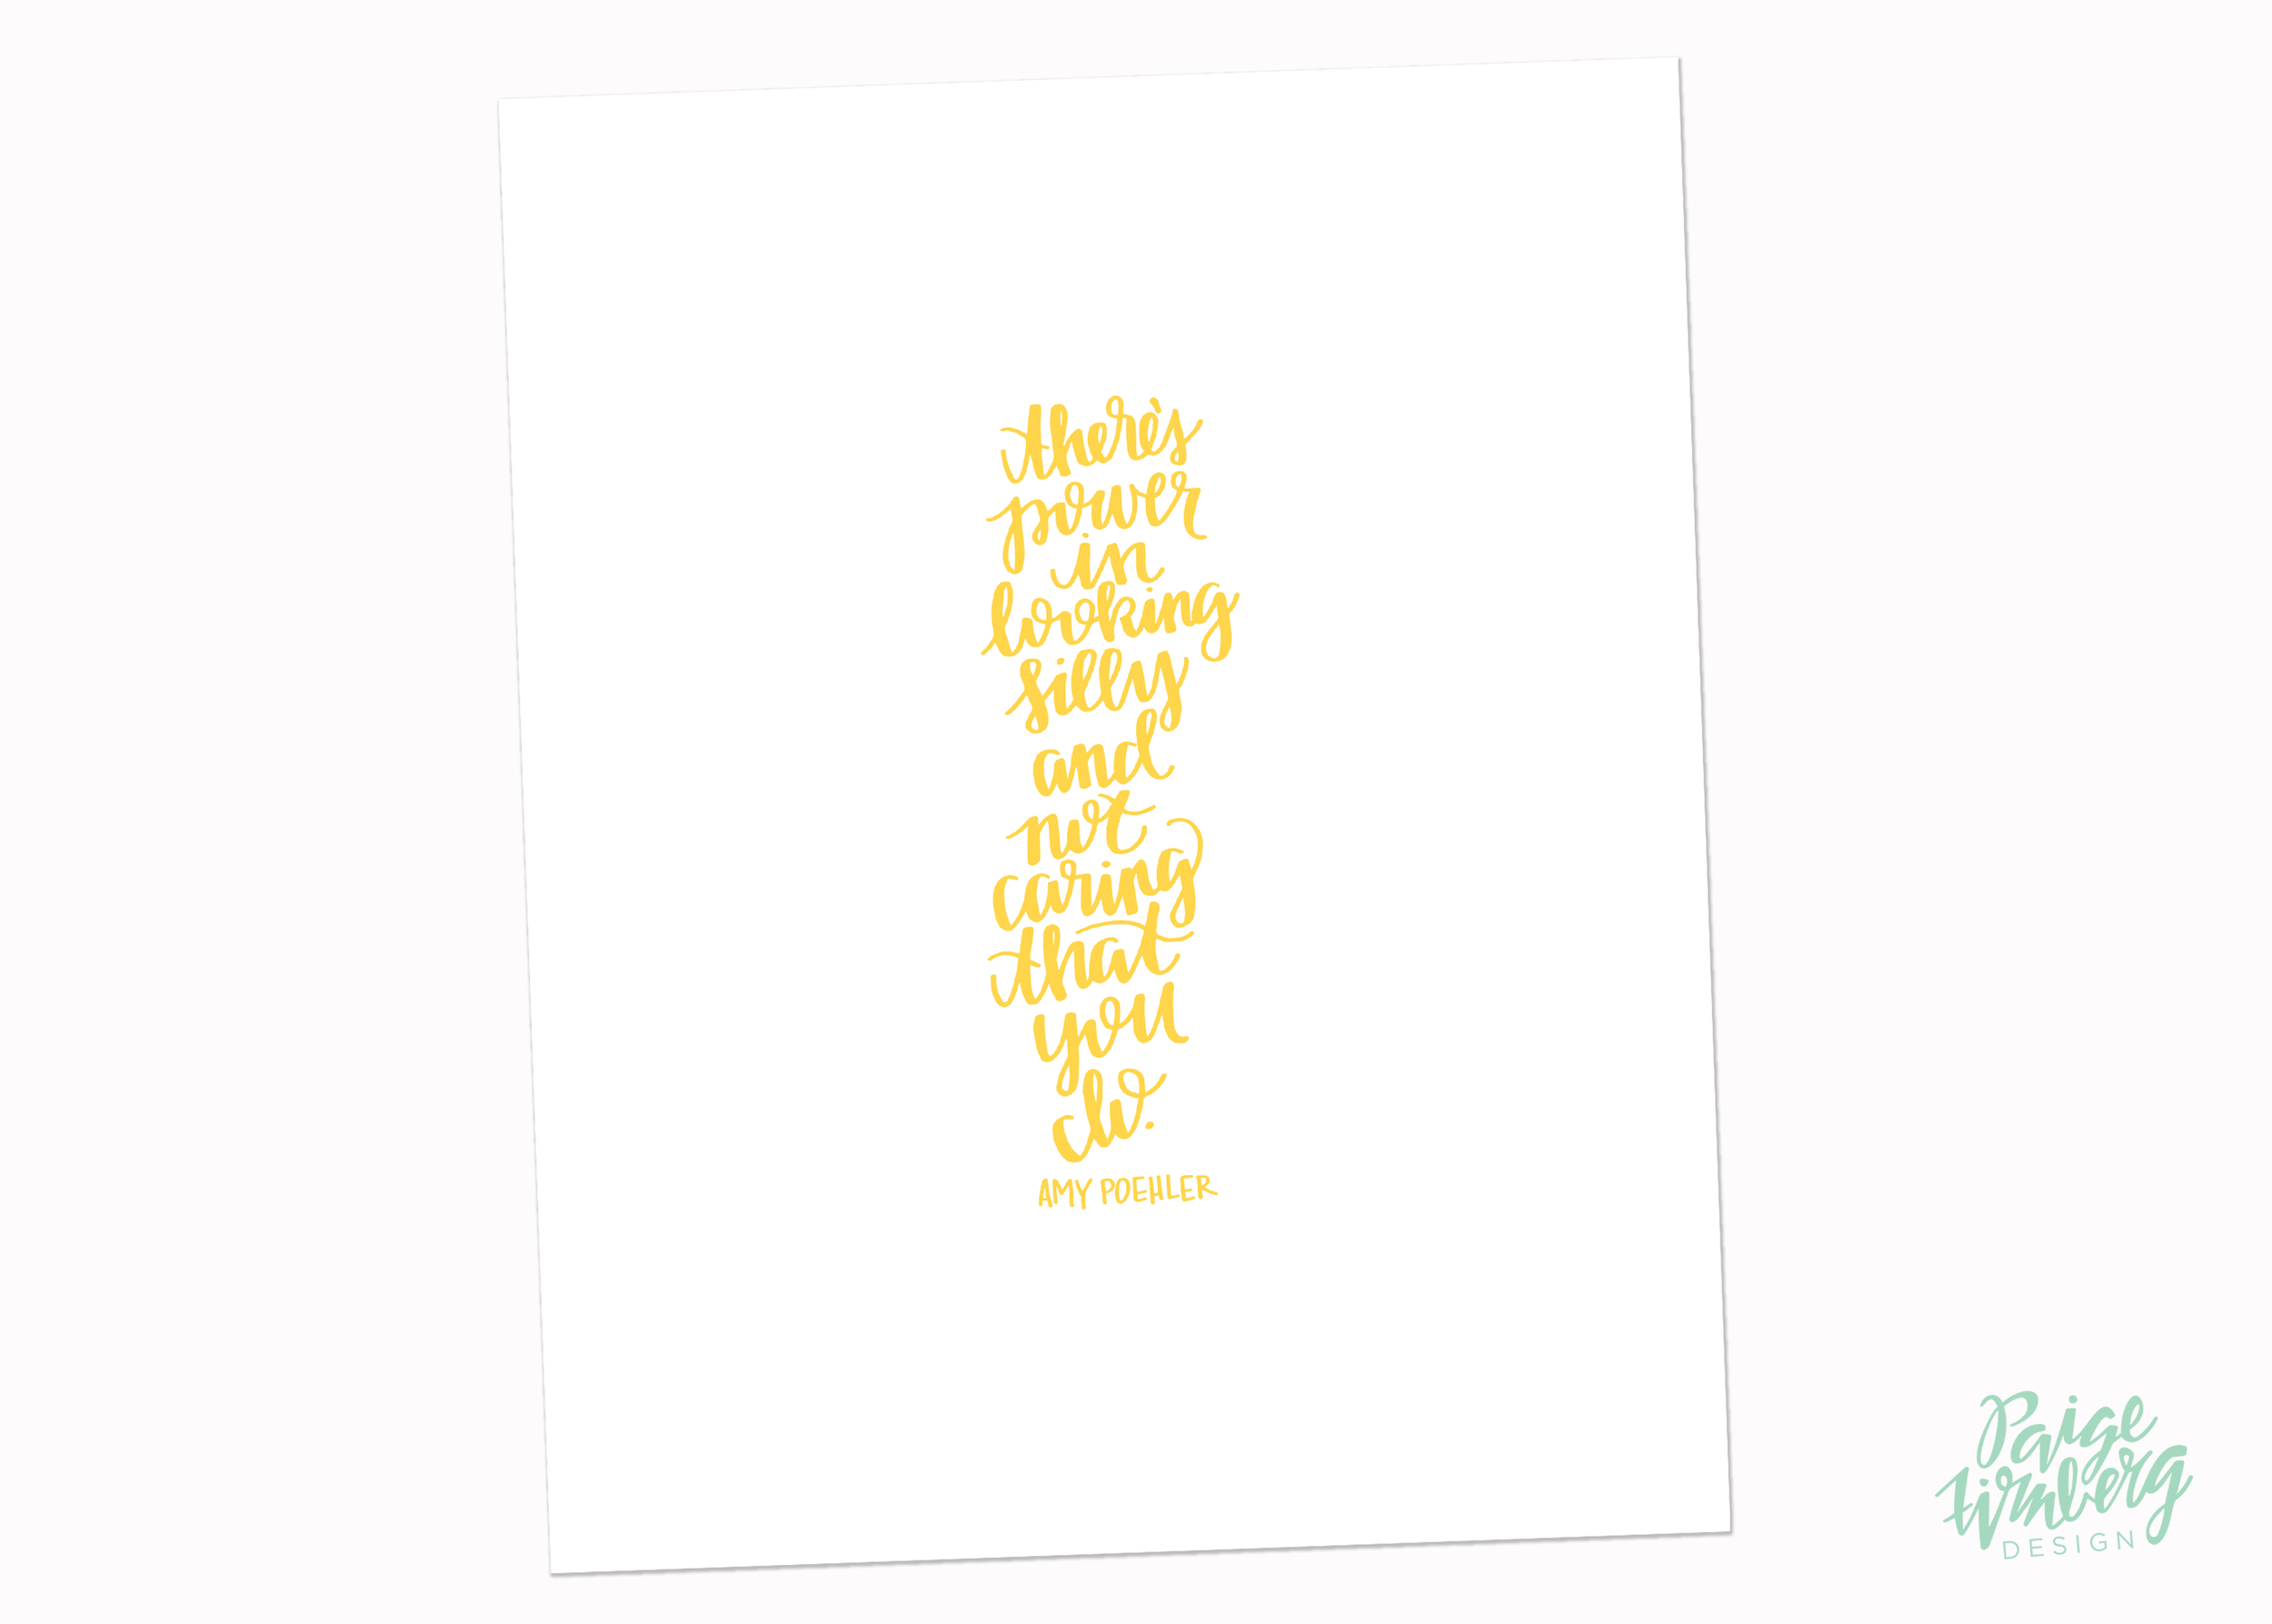 there's
power
in
looking
silly
and
not
caring
that
you
do.
AMY POEHLER
Paige
Firnberg
DESIGN